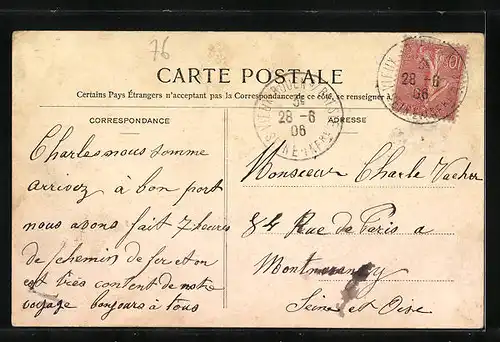 76
CARTE POSTALE
Certains Pays Étrangers n'acceptant pas la Correspondance de ce côté, se renseigner à
CORRESPONDANCE
ADRESSE
VIEUX-ROUEN S/ BRESLE
3E
28 -6
06
SEINE-INFRE
VIEUX
28 -6
06
SEINE-INFRE
10
Charles nous somme
arrivez à bon port
nous avons fait 7 heures
de chemin de fer et on
est très content de notre
voyage bonjours à tous
Monsieur Charle Vacher
84 Rue de Paris a
Montmorency
Seine et Oise